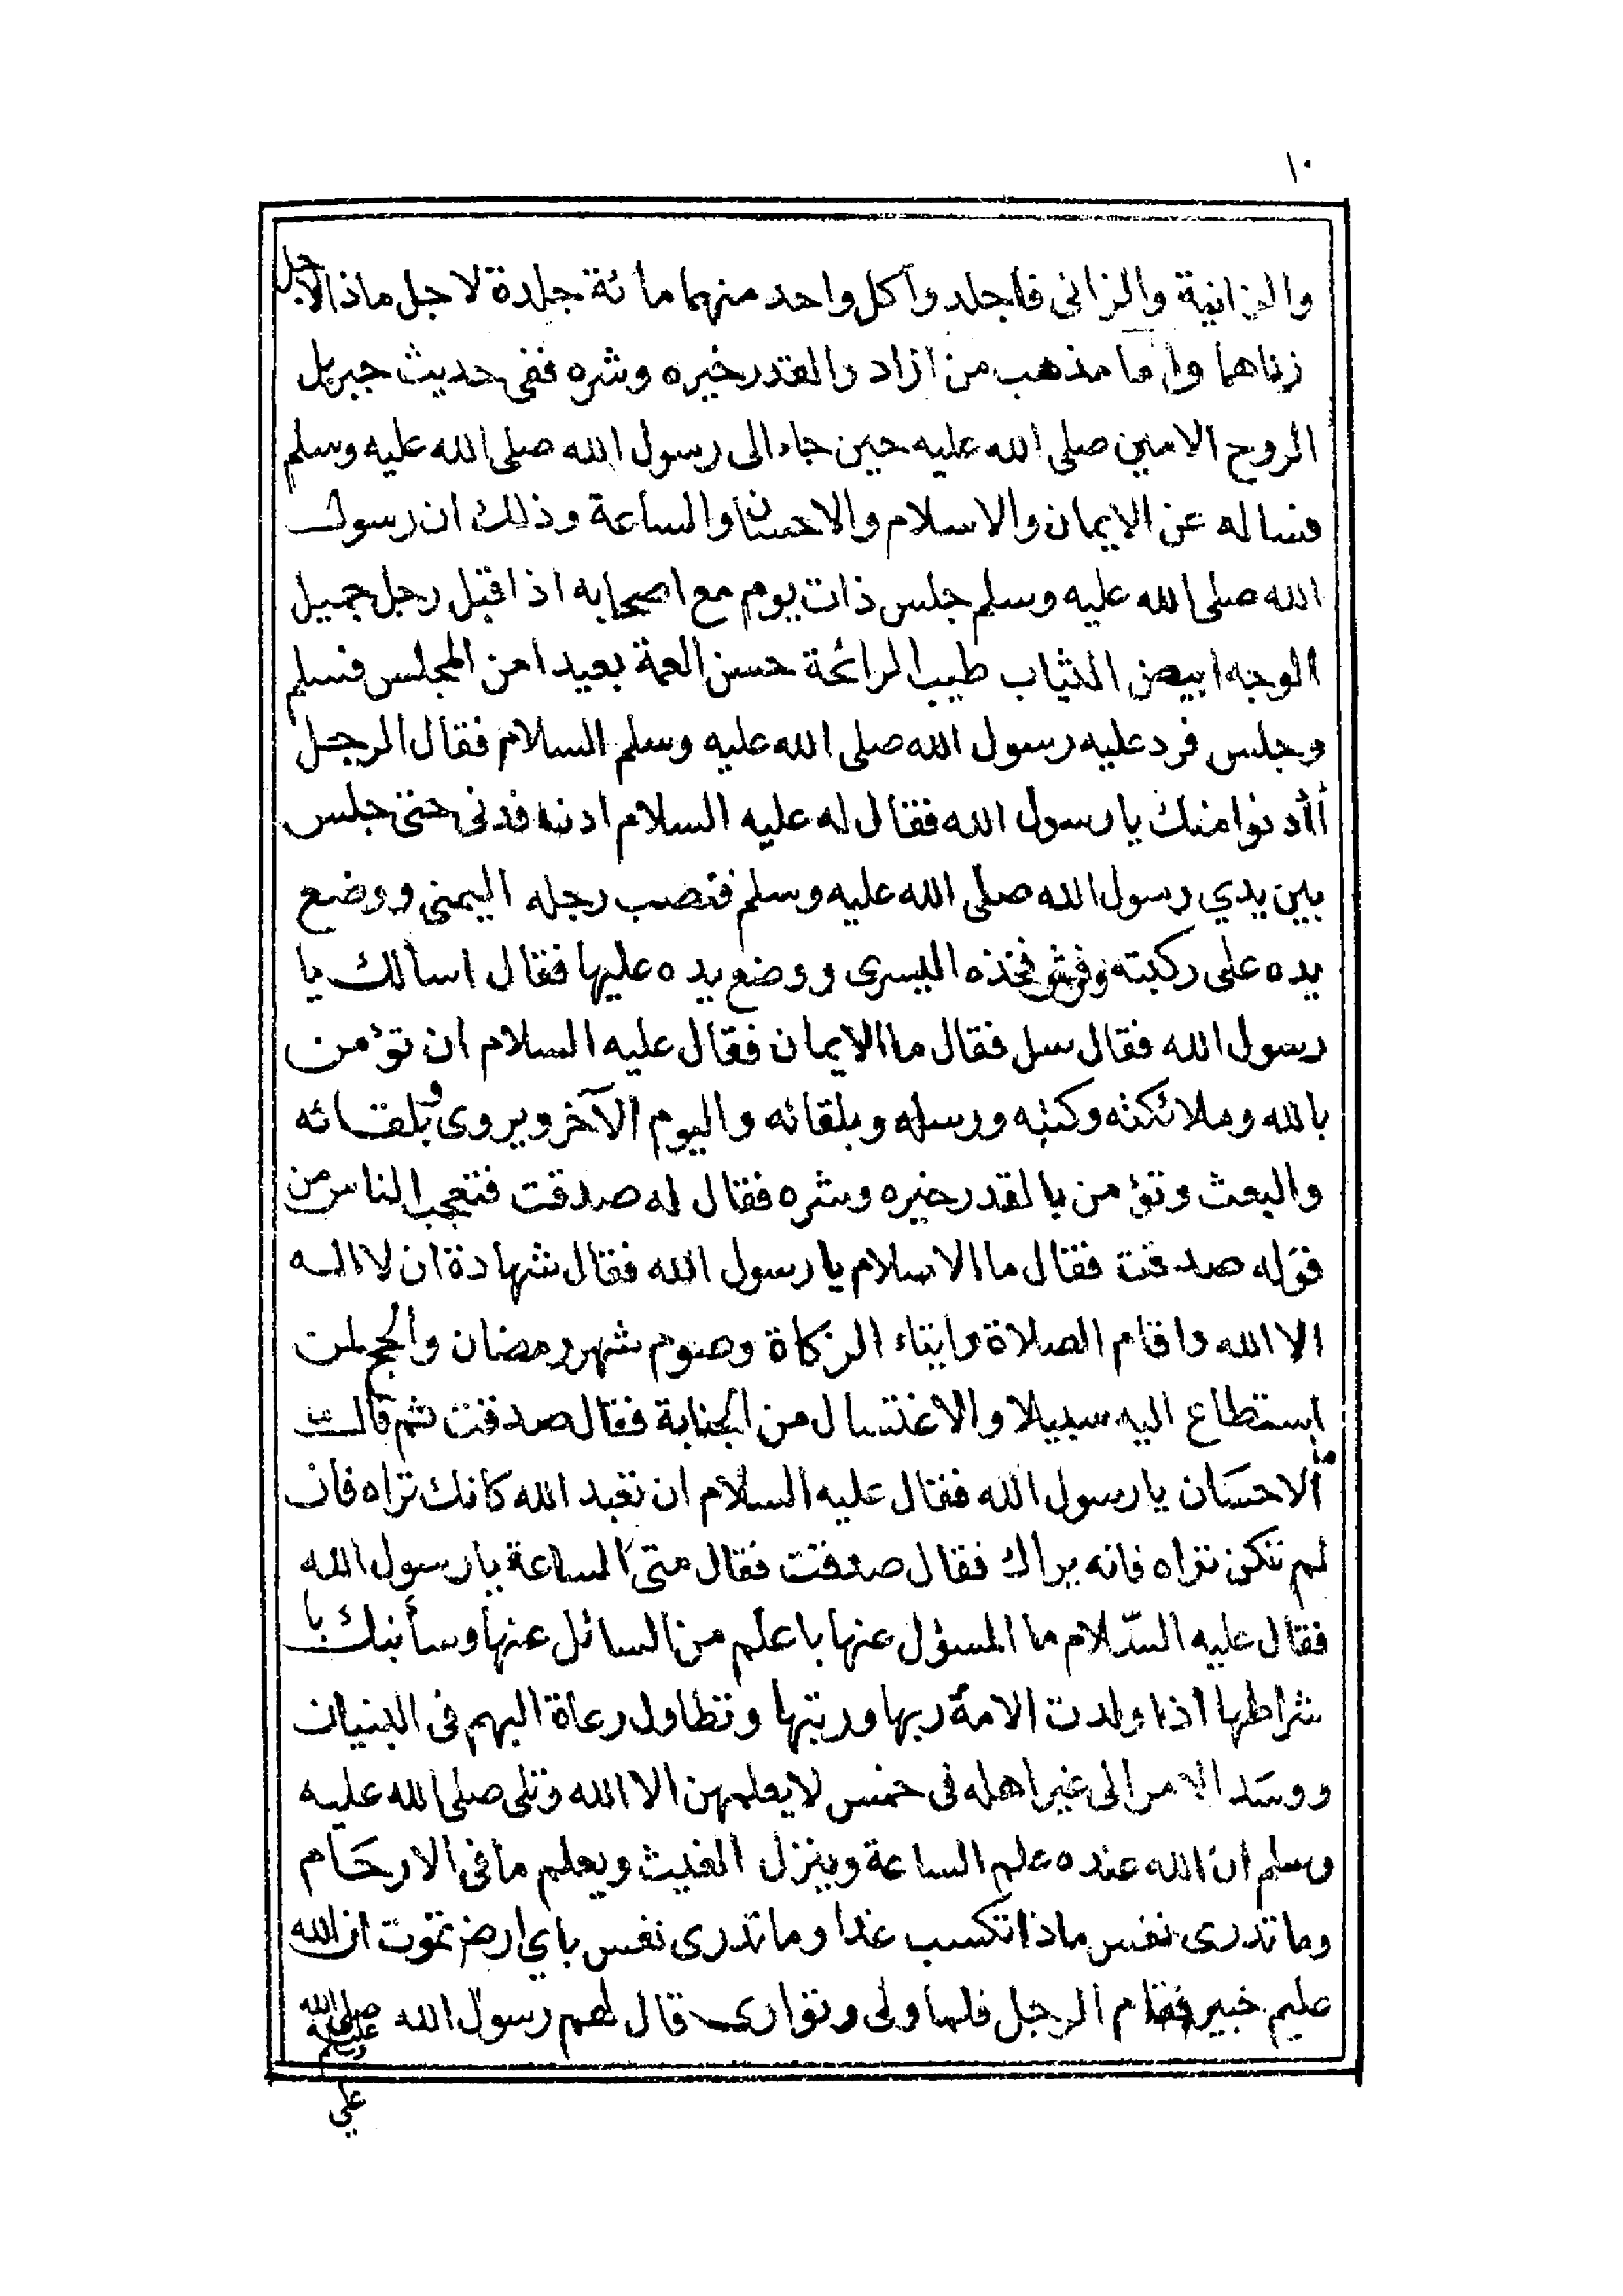 ١٠
والزانية والزانى فاجلدوا كل واحد منهما مائة جلدة لاجل ماذا لاجل
زناهما واما مذهب من ازاد والقدر خيره وشره ففى حديث جبريل
الروح الامين صلى الله عليه حين جاء الى رسول الله صلى الله عليه وسلم
فساله عن الايمان والاسلام والاحسان والساعة وذلك ان رسول
الله صلى الله عليه وسلم جلس ذات يوم مع اصحابه اذ اقبل رجل جميل
الوجه ابيض الثياب طيب الرائحة حسن العمة بعيدا من المجلس فسلم
وجلس فرد عليه رسول الله صلى الله عليه وسلم السلام فقال الرجل
أأدنوا منك يا رسول الله فقال له عليه السلام ادنه فدنى حتى جلس
بين يدي رسول الله صلى الله عليه وسلم فنصب رجله اليمنى ووضع
يده على ركبته وفرش فخذه اليسرى ووضع يده عليها فقال اسألك يا
رسول الله فقال سل فقال ما الايمان فقال عليه السلام ان تؤمن
بالله وملائكته وكتبه ورسله وبلقائه واليوم الآخر ويروى وبلقائه
والبعث وتؤمن بالقدر خيره وشره فقال له صدقت فتعجب الناس من
قوله صدقت فقال ما الاسلام يا رسول الله فقال شهادة ان لا اله
الا الله واقام الصلاة وايتاء الزكاة وصوم شهر رمضان والحج لمن
استطاع اليه سبيلا والاغتسال من الجنابة فقال صدقت ثم قال
ما الاحسان يا رسول الله فقال عليه السلام ان تعبد الله كانك تراه فان
لم تكن تراه فانه يراك فقال صدقت فقال متى الساعة يا رسول الله
فقال عليه السّلام ما المسؤل عنها باعلم من السائل عنها وسأنبئك با
شراطها اذا ولدت الامة ربها وربتها وتطاول رعاة البهم فى البنيان
ووسد الامر الى غير اهله فى خمس لا يعلمهن الا الله وتلى صلى الله عليه
وسلم ان الله عنده علم الساعة وينزل الغيث ويعلم ما فى الارحام
وما تدرى نفس ماذا تكسب غدا وما تدرى نفس باي ارض تموت ان الله
عليم خبير فقام الرجل فلما ولى وتوارى قال لهم رسول الله صلى الله عليه وسلم
علي